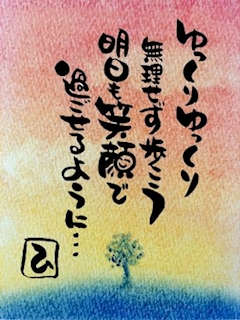 ゆっくりゆっくり
無理せず歩こう
明日も笑顔で
過ごせるように…
ひ